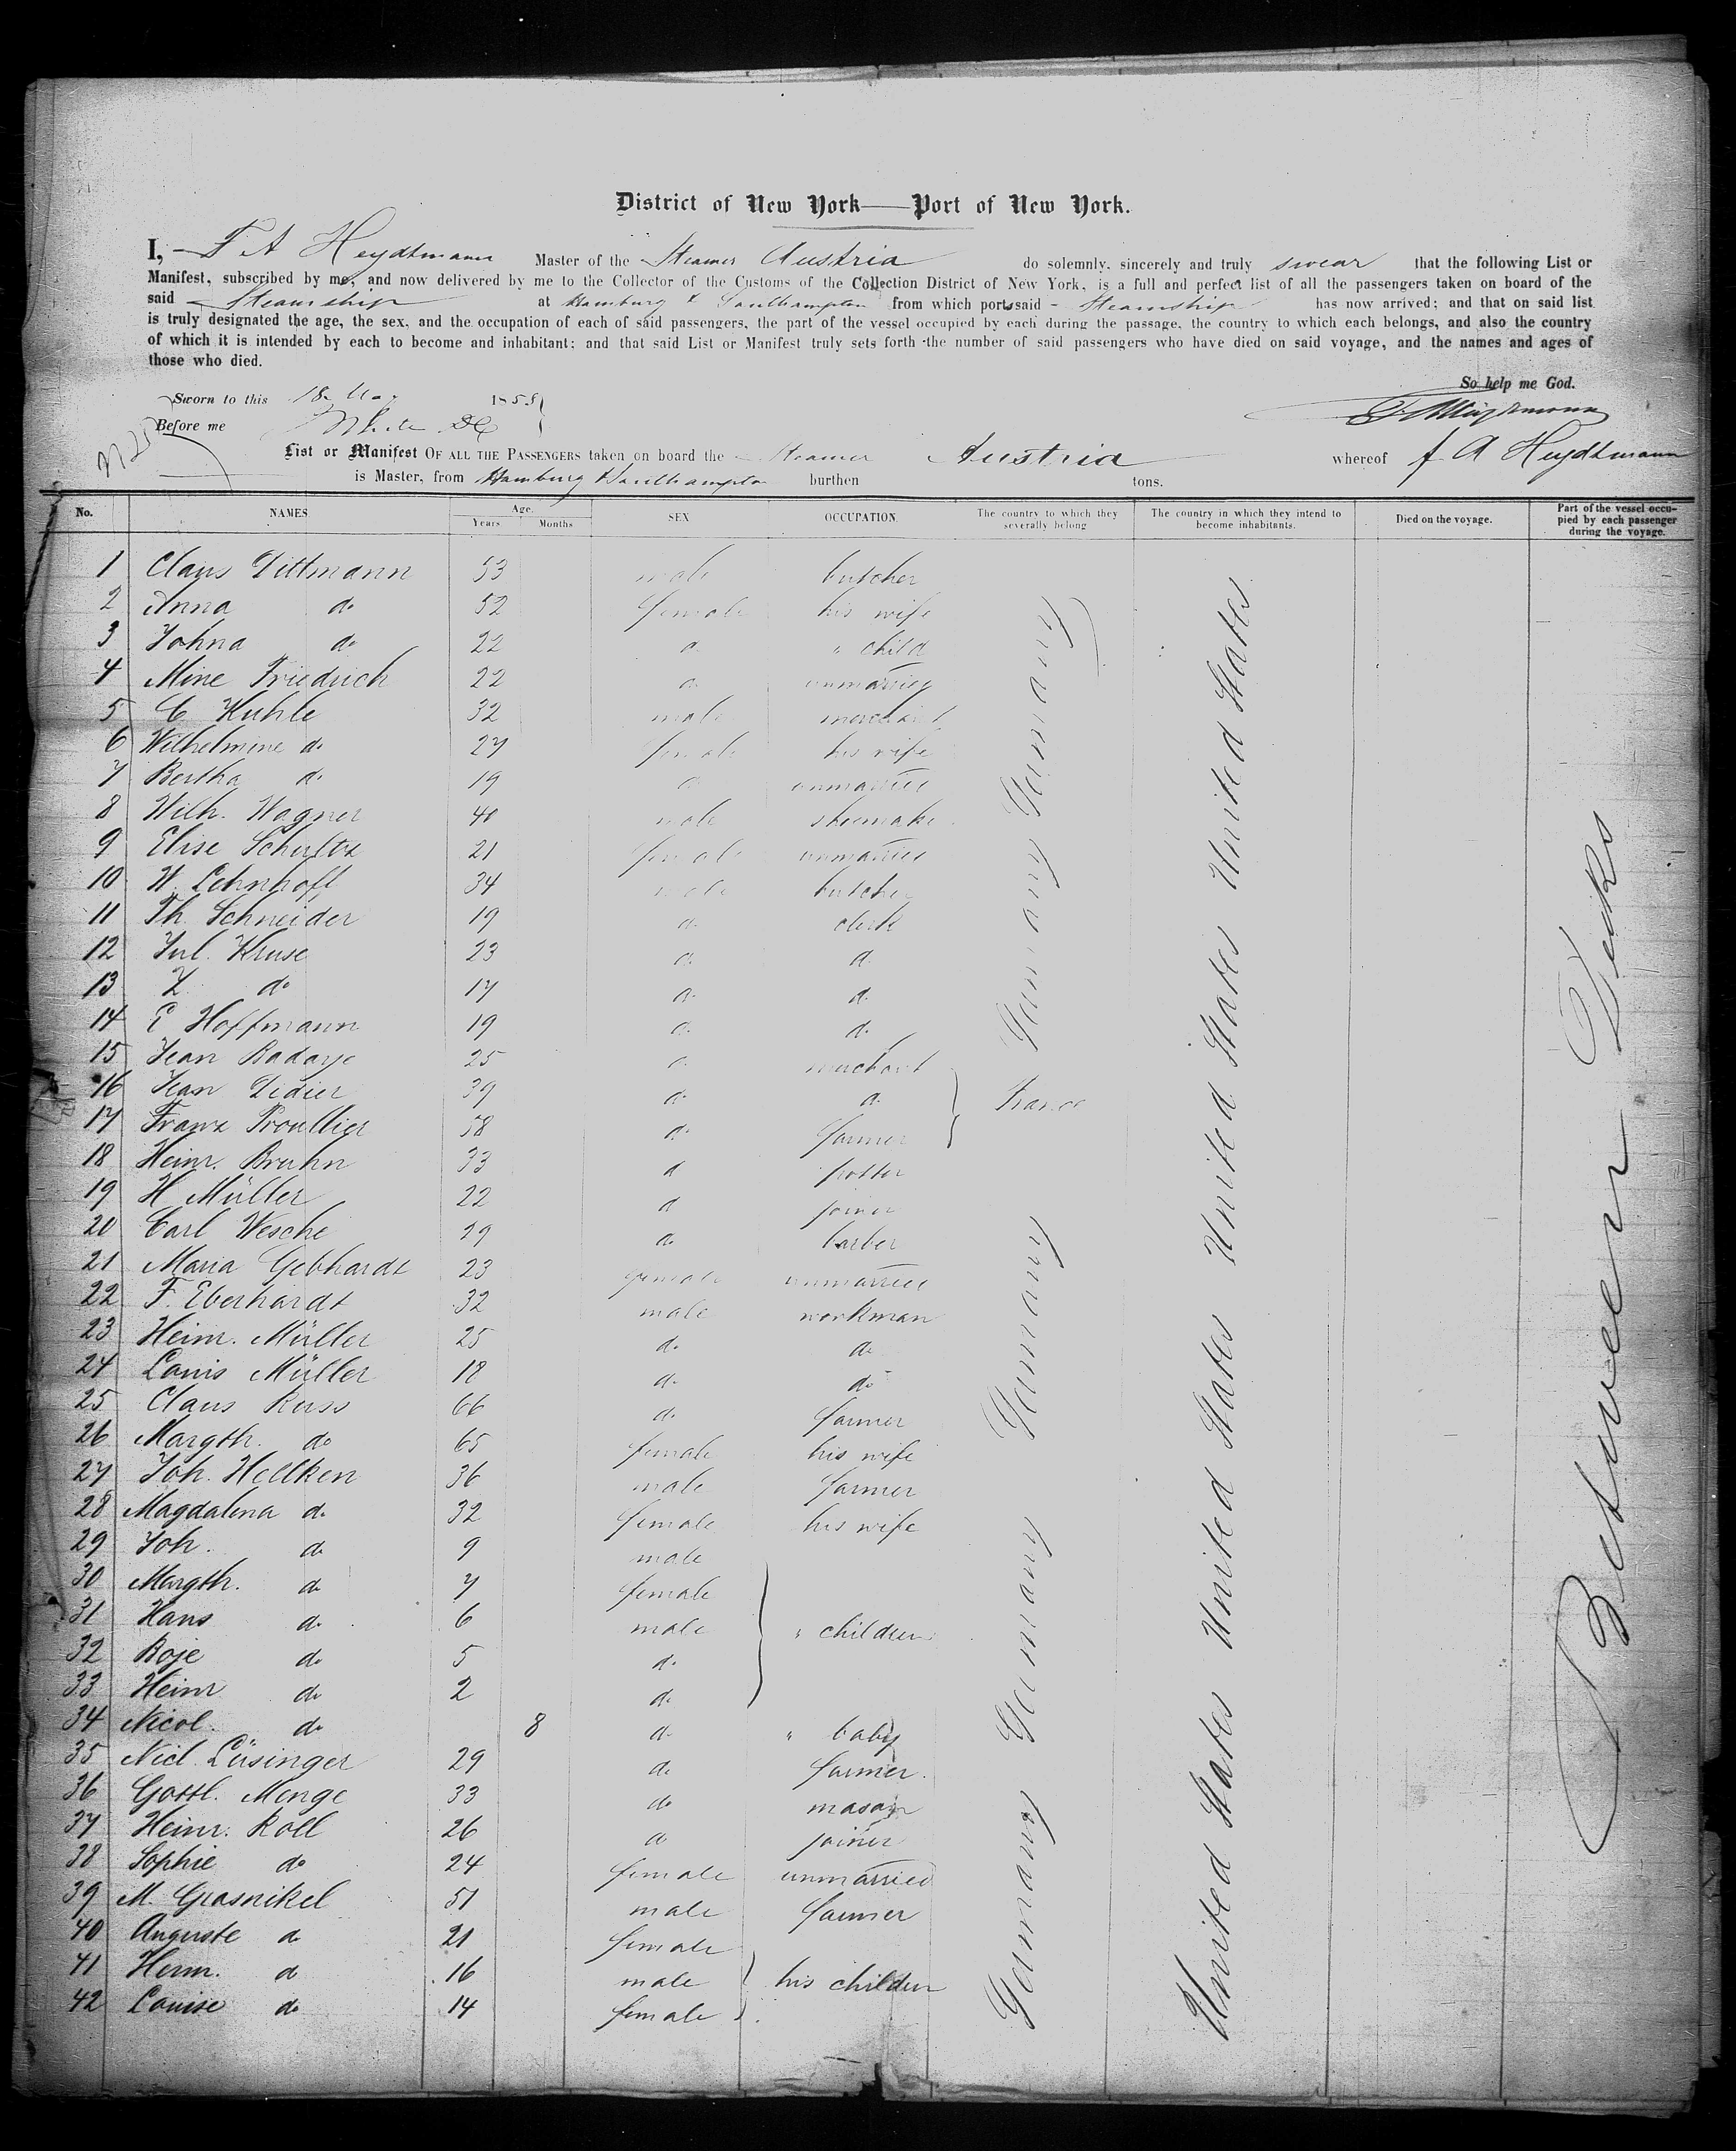 District of New York—Port of New York.
I, F A Heydtmann Master of the Steamer Austria do solemnly, sincerely and truly swear that the following List or
Manifest, subscribed by me, and now delivered by me to the Collector of the Customs of the Collection District of New York, is a full and perfect list of all the passengers taken on board of the
said Steamship at Hamburg & Southampton from which ports said Steamship has now arrived; and that on said list
is truly designated the age, the sex, and the occupation of each of said passengers, the part of the vessel occupied by each during the passage, the country to which each belongs, and also the country
of which it is intended by each to become and inhabitant; and that said List or Manifest truly sets forth the number of said passengers who have died on said voyage, and the names and ages of
those who died.
So help me God.
Sworn to this 18 1858
Before me
List or Manifest OF ALL THE PASSENGERS taken on board the Steamer Austria whereof f A Heydtmann
is Master, from Hamburg & Southampton burthen tons.
No. NAMES Age. Years Months SEX OCCUPATION. The country to which they severally belong The country in which they intend to become inhabitants. Died on the voyage. Part of the vessel occupied by each passenger during the voyage.
1 Claus Dittmann 53 male butcher
2 Anna do 52 female his wife
3 Johna do 22 do " child
4 Mine Friedrich 22 do unmarried
5 C Kuhle 32 male merchant
6 Wilhelmine do 27 female his wife
7 Bertha do 19 do unmarried
8 Wilh. Wagner 40 male shoemaker
9 Elise Schultz 21 female unmarried
10 W. Lehnhoff 34 male butcher
11 Th. Schneider 19 do clerk
12 Jul. Kruse 23 do do
13 do 17 do do
14 E Hoffmann 19 do do
15 Jean Badarje 25 do merchant
16 Jean Didier 39 do do France
17 Franz Proullier 58 do farmer
18 Heinr. Bruhn 33 do potter
19 H Müller 22 do joiner
20 Carl Wesche 29 do barber
21 Maria Gebhardt 23 female unmarried
22 F. Eberhardt 32 male workman
23 Heinr. Müller 25 do do
24 Louis Müller 18 do do
25 Claus Russ 66 do farmer
26 Margth. do 65 female his wife
27 Joh. Hellken 36 male farmer
28 Magdalena do 32 female his wife
29 Joh. do 9 male
30 Margth. do 7 female
31 Hans do 6 male " children
32 Boje do 5 do
33 Heinr do 2 do
34 Nicol. do 8 do " baby
35 Nicl. Lüsinger 29 do farmer
36 Gottl. Menge 33 do mason
37 Heinr. Roll 26 do joiner
38 Sophie do 24 female unmarried
39 M. Grasnikel 51 male farmer
40 Auguste do 21 female
41 Herm. do 16 male his children
42 Louise do 14 female
Germany Germany Germany Germany Germany
United States United States United States United States United States
Between Decks